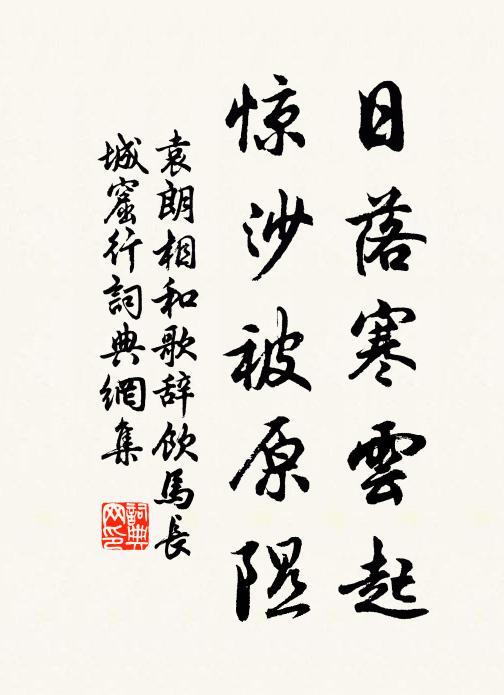 日落寒雲起
惊沙被原隰
袁朗相和歌辞饮馬長
城窟行詞典網集
詞典
网印